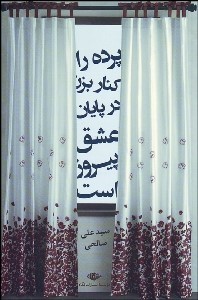 پرده را
کنار بزن
در پایان
عشق
پیروز
است
سید علی
صالحی